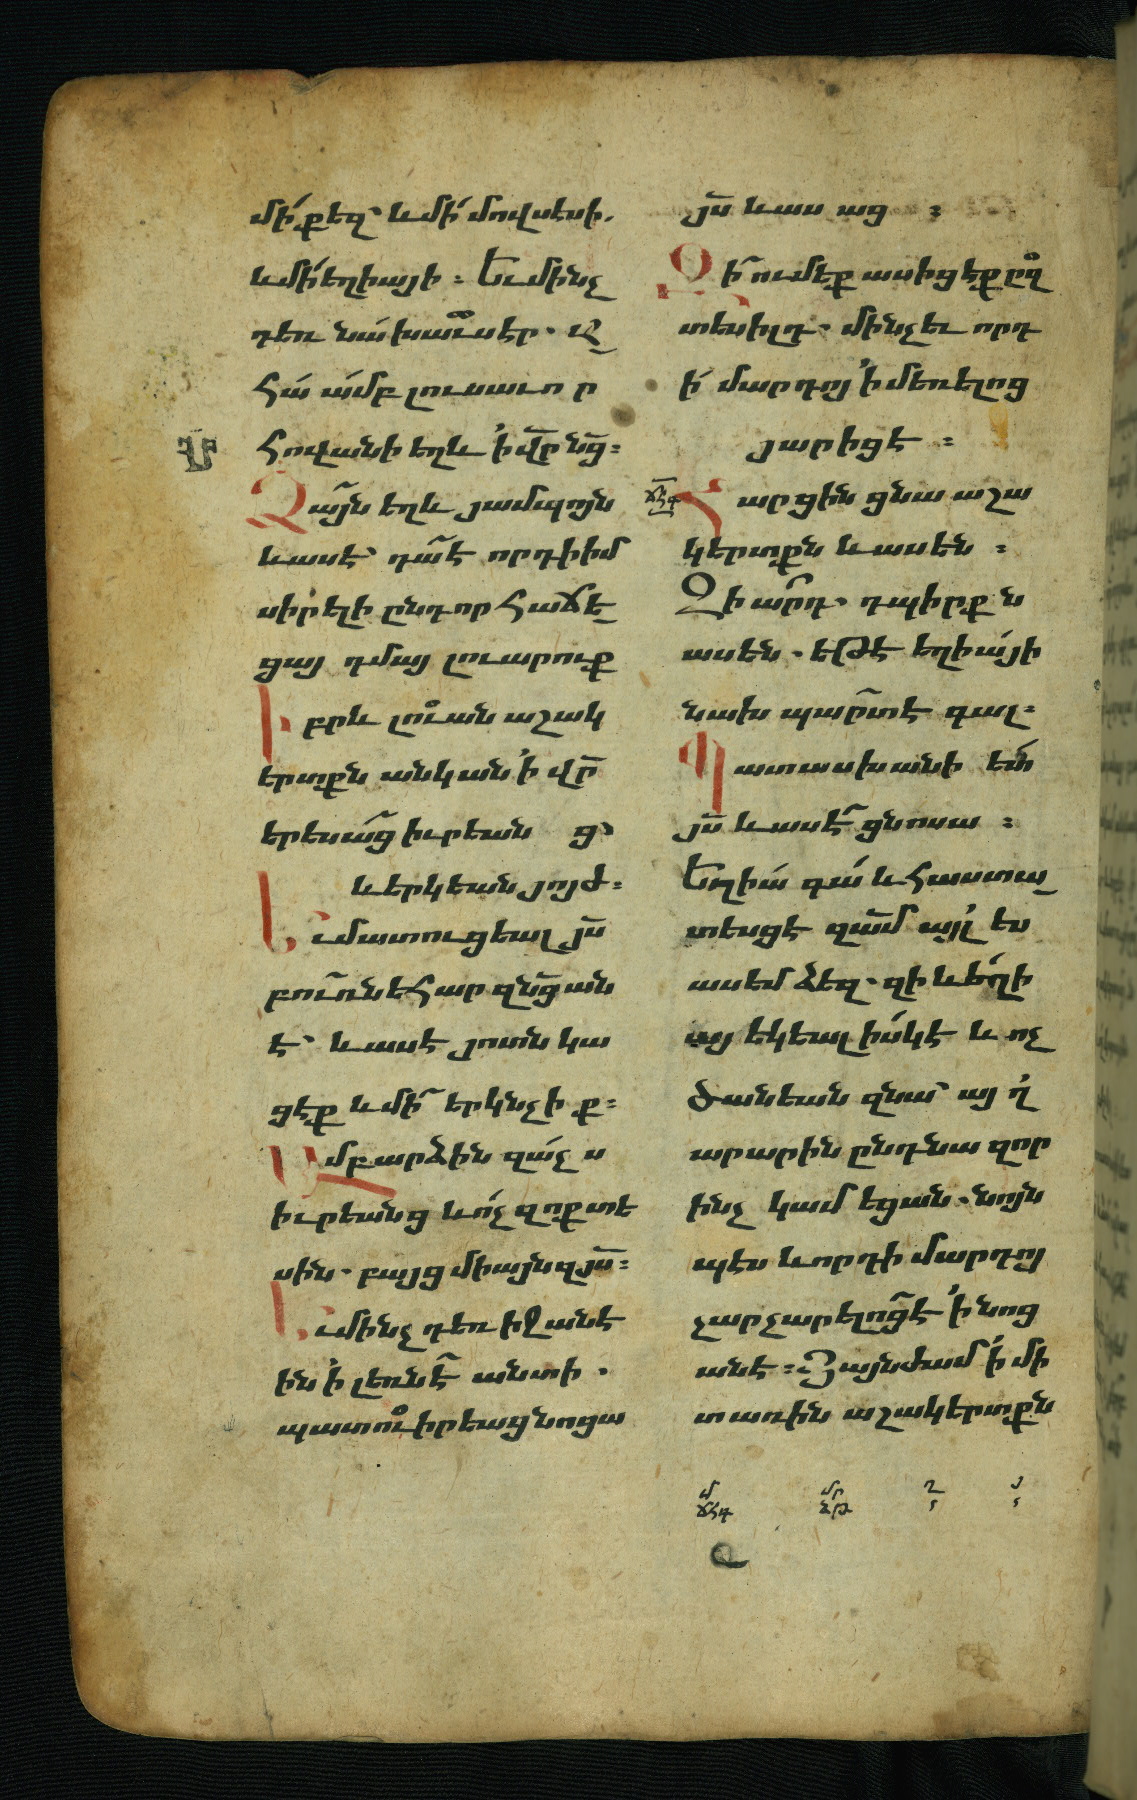 մի՛ քեզ՝ և մի՛ մովսէսի.
և մի՛ եղիայի։ Եւ մինչ
դեռ նա՛ խաւսէր. Ա
հա՛ ամբ լուսաւոր
հովանի եղև ՚ի վր նց։
Ձայն եղև յամպոյն
և ասէ՝ դա է որդի իմ
սիրելի ընդ որ հաճե
ցայ դմայ լուարուք
Իբրև լուան աշակ
երտքն անկան ՚ի վր
երեսաց իւրեանց՝
և երկեան յոյժ։
Եւ մատուցեալ յս
բուռն եհար զնցան
է՝ և ասէ յոտն կա
ցէք և մի՛ երկնչիք։
Ամբարձին զաչս
իւրեանց և ոչ զոք տե
սին. բայց միայն զյս։
Եւ մինչ դեռ իջանէ
ին ՚ի լեռնէ անտի.
պատուիրեաց նոցա
յս և աս աց։
Զի՛ ումեք ասիցէք ըզ
տեսիլդ. մինչեւ որդ
ի՛ մարդոյ ՚ի մեռելոց
յարիցէ։
ճհգ
Հարցին ցնա աշա
կերտքն և ասեն։
Զի արդ. դպիրքն
ասեն. եթէ եղիայի
նախ պարտ է գալ։
Պատասխանի ետ
յս և ասէ ցնոսա։
Եղիա՛ գա՛ և հաստա
տեսցէ զամ այլ ես
ասեմ ձեզ. զի և եղի
այ եկեալ իսկ է և ոչ
ծանեան զնա՝ այղ
արարին ընդ նա զոր
ինչ կամեցան. նոյն
պէս և որդի մարդոյ
չարչարելոց է ՚ի նոց
անէ։ Յայնժամ ՚ի մի
տ առին աշակերտքն
մ մր ղ յ
ճհգ ձթ